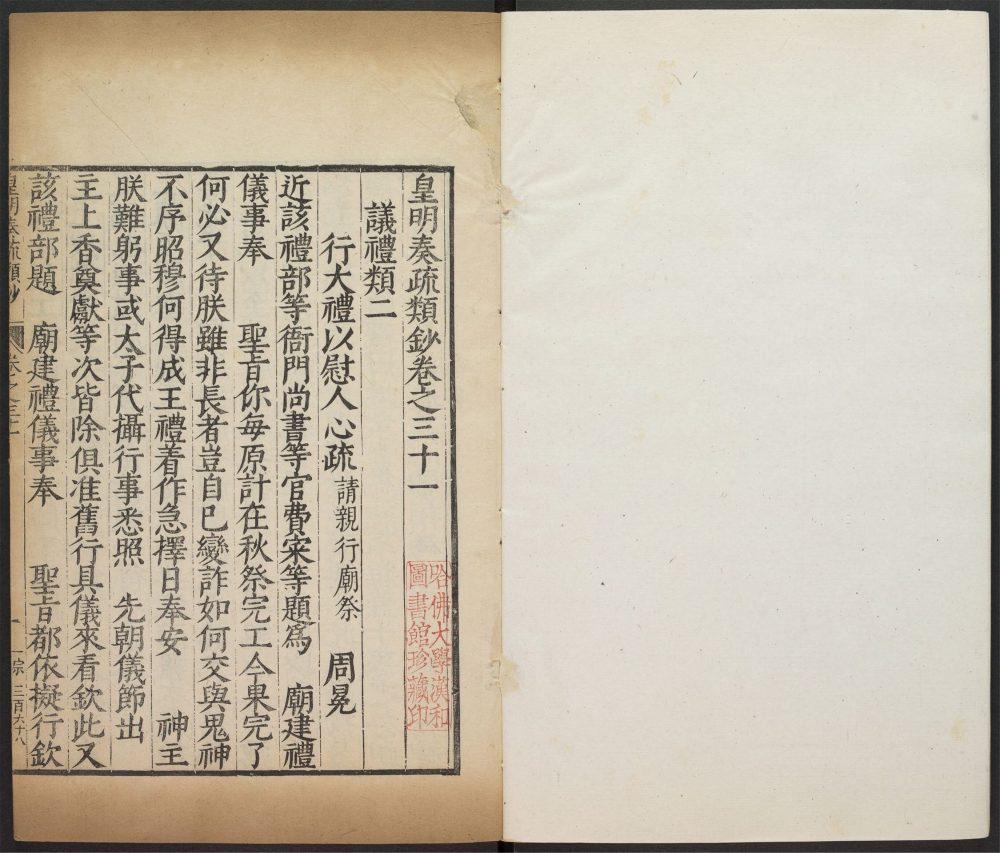 皇明奏疏類鈔卷之三十一
議禮類二
行大禮以慰人心疏 請親行廟祭 周冕
近該禮部等衙門尚書等官費寀等題爲 廟建禮
儀事奉 聖旨你每原計在秋祭完工今果完了
何必又待朕雖非長者豈自已變詐如何交與鬼神
不序昭穆何得成王禮着作急擇日奉安 神主
朕難躬事或太子代攝行事悉照 先朝儀節出
主上香奠獻等次皆除俱准舊行具儀來看欽此又
該禮部題 廟建禮儀事奉 聖旨都依擬行欽
皇明奏疏類鈔 卷之三十一 一 宗 三百六十八
哈佛大學漢和
圖書館珍藏印